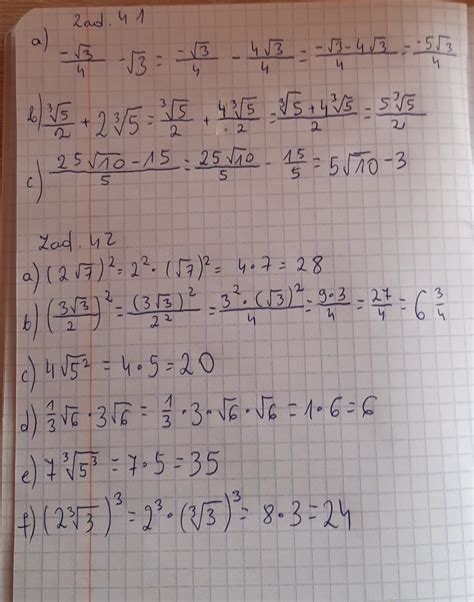 Zad. 41
a) -√3/4 - √3 = -√3/4 - 4√3/4 = -√3-4√3/4 = -5√3/4
b) ∛5/2 + 2∛5 = ∛5/2 + 4∛5/2 = ∛5+4∛5/2 = 5∛5/2
c) 25√10-15/5 = 25√10/5 - 15/5 = 5√10-3
Zad. 42
a) (2√7)² = 2² · (√7)² = 4·7 = 28
b) (3√3/2)² = (3√3)²/2² = 3²·(√3)²/4 = 9·3/4 = 27/4 = 6 3/4
c) 4√5² = 4·5 = 20
d) 1/3√6 · 3√6 = 1/3 · 3 · √6 · √6 = 1·6 = 6
e) 7∛5³ = 7·5 = 35
f) (2∛3)³ = 2³ · (∛3)³ = 8·3 = 24